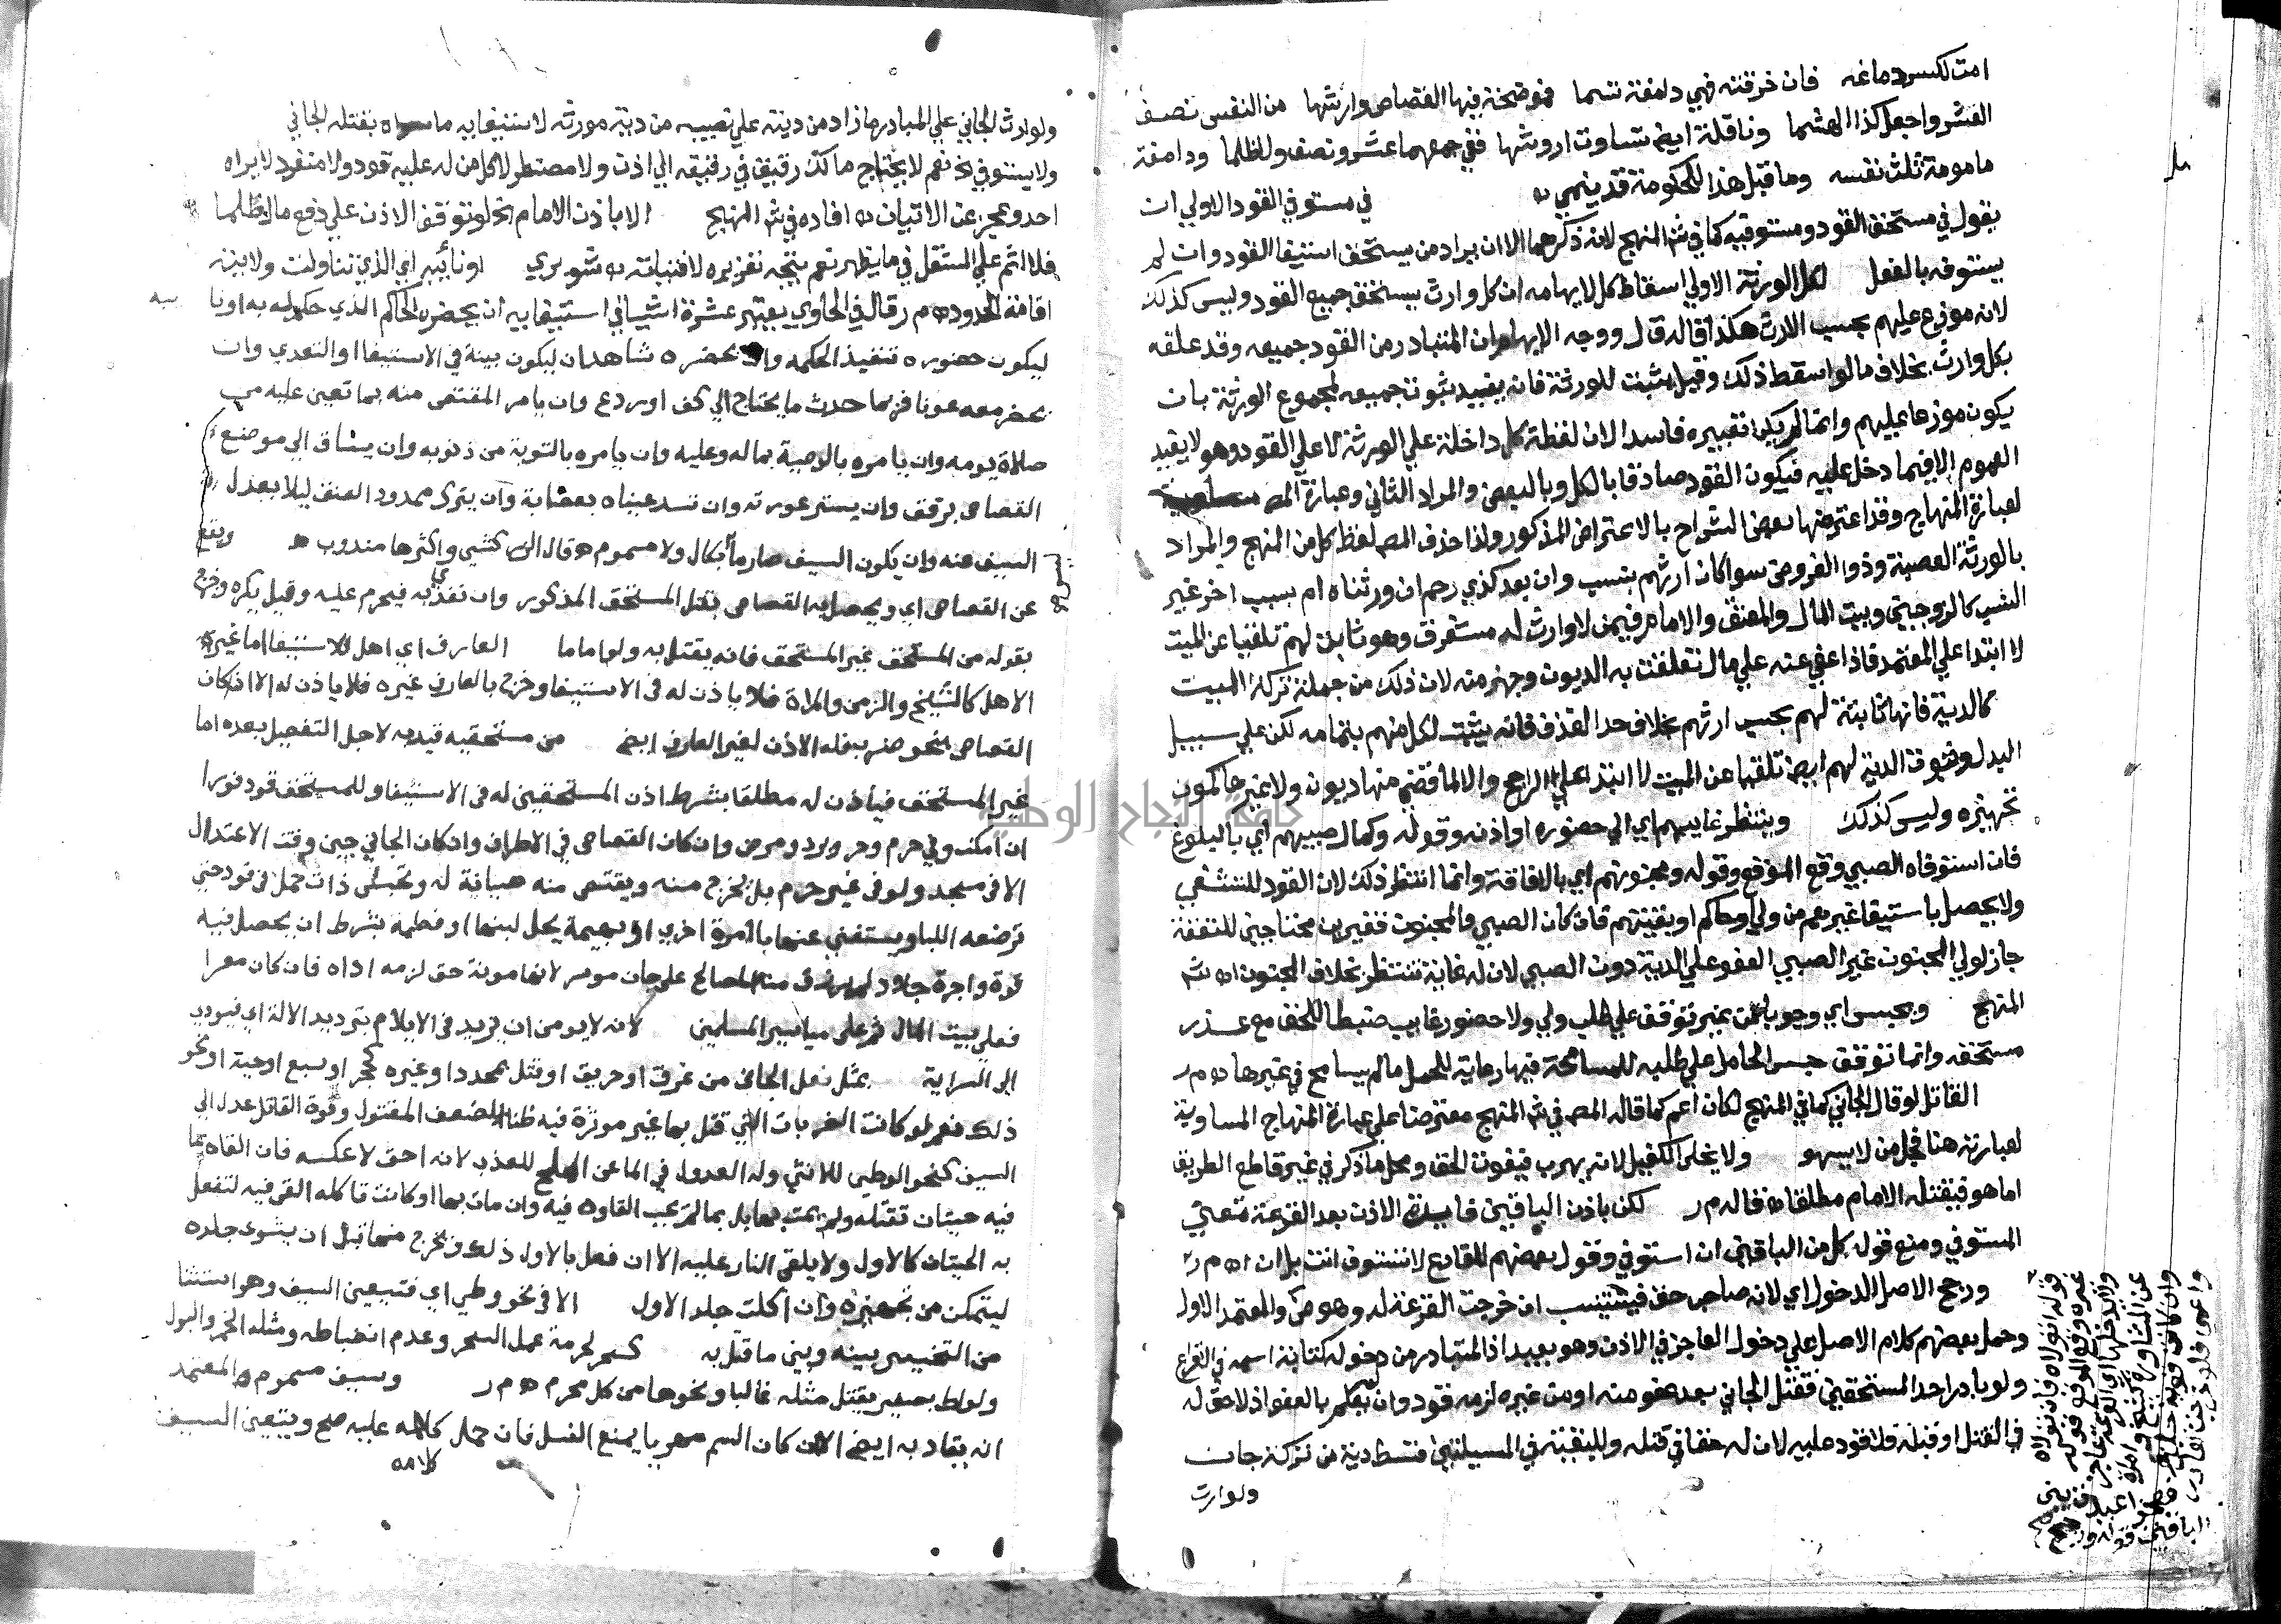 امت لكسر دماغه فان خرقته فهي دامغة تسما فموضحة فيها القصاص وارشها من النفس نصف
العشر واجعل كذا الهشما وناقلة ايض تساوت اروشها ففي جمعهما عشر ونصف ولظلما ودامغة
مامومة ثلث نفسه وما قبل هذا للحكومة قد ينمي في مستوفي القود الاولي ان
يقول في مستحق القود ومستوفيه كما في شم المنهج لانه ذكرهما الا ان يراد من يستحق استيفا القود وان لم
يستوفه بالفعل لكل الورثة الاولي اسقاط كل لايهامه ان كل وارث يستحق جميع القود وليس كذلك
لانه موزع عليهم بحسب الارث هكذا قاله ق ل ووجه الايهام ان المتبادر من القود جميعه وقد علقه
بكل وارث بخلاف ما لو اسقط ذلك وقيل يثبت للورثة فانه يفيد ثبوت جميعه لمجموع الورثة بان
يكون موزعا عليهم وانما لم يكن تعبيره فاسدا لان لفظة كل داخلة علي الورثة لا علي القود وهو لا يفيد
العموم الا فيما دخل عليه فيكون القود صادقا بالكل وبالبعض والمراد الثاني وعبارة المص مساوية
لعبارة المنهاج وقد اعترضها بعض الشراح بالاعتراض المذكور ولذا حذف المص لفظ كل من المنهج والمراد
بالورثة العصبة وذوا الفروض سوا كان ارثهم بنسب وان بعد كذي رحم ان ورثناه ام بسبب اخر غير
النسب كالزوجين وبيت المال والمعتق والامام فيمن لا وارث له مستغرق وهو ثابت لهم تلقيا عن الميت
لا ابتدا علي المعتمد فاذا عفي عنه علي مال تعلقت به الديون وجهز منه لان ذلك من جملة تركة الميت
كالدية فانها ثابتة لهم بحسب ارثهم بخلاف حد القذف فانه يثبت لكل منهم بتمامه لكن علي سبيل
البدل وثبوت الدية لهم ايض تلقيا عن الميت لا ابتدا علي الراجح والا لما قضي منها ديونه ولا غير حاكمون
تجهيزه وليس كذلك وينتظر غايبهم اي الي حضوره او اذنه وقوله وكمال صبيهم اي بالبلوغ
فان استوفاه الصبي وقع الموقع وقوله ومجنونهم اي بالافاقة وانما انتظر ذلك لان القود للتشفي
ولا يحصل باستيفا غيرهم من ولي او حاكم او بقيتهم فان كان الصبي والمجنون فقيرين محتاجين للنفقة
جاز لولي المجنون غير الصبي العفو علي الدية دون الصبي لان له غاية تنتظر بخلاف المجنون اه شم
المنهج ويحبس اي وجوبا من غير توقف علي طلب ولي ولا حضور غايب ضبطا للحق مع عذر
مستحقه وانما توقف حبس الحامل علي طلبه للمسامحة فيها رعاية للحمل ما لم يسامح في غيرها اه م ر
القاتل لو قال الجاني كما في المنهج لكان اعم كما قاله المص في شم المنهج معترضا علي عبارة المنهاج المساوية
لعبارته هنا فجل من لا يسهو ولا يخلي بكفيل لانه يهرب فيفوت الحق ومحل ما ذكر في غير قاطع الطريق
اما هو فيقتله الامام مطلقا اه قاله م ر لكن باذن الباقين فايدة الاذن بعد القرعة تعيين
المستوفي ومنع قول كل من الباقين ان استوفي وقول بعضهم للقارع لا تستوف انت بل ان اه م ر
ورجح الاصل الدخول اي لانه صاحب حق فيستنيب ان خرجت القرعة له وهو ض والمعتمد الاول
وحمل بعضهم كلام الاصل علي دخول العاجز في الاذن وهو بعيد اذ المتبادر من دخوله كتابة اسمه في القراع
ولو بادر احد المستحقين فقتل الجاني بعد عفو منه او من غيره لزمه قود وان لم يعلم بالعفو اذ لا حق له
في القتل او قبله فلا قود عليه لان له حقا في قتله وللبقية في المسيلتين قسط دية من تركة جان
ولوارث
ولوارث الجاني علي المبادر ما زاد من ديته علي نصيبه من دية مورثه لاستيفايه ما سواه بقتله الجاني
ولا يستوفي نعم لا يحتاج مالك رقيق في رقيقه الي اذن ولا مضطر لاكل من له عليه قود ولا منفرد لا يراه
احد وعجز عن الاثبات اه افاده في شم المنهج الا باذن الامام بخلو توقف الاذن علي دفع مال ظلما
فلا اثم علي المستقل في ما يظهر نعم يتجه تعزيره لافتياته اه شوبري او نائبه اي الذي تناولت ولايته
اقامة الحدود اه م ر قال في الحاوي يعتبر عشرة اشيا في استيفايه ان يحضره الحاكم الذي حكم له به او نا يبه
ليكون حضوره تنفيذ الحكمه وان يحضره شاهدان ليكون بينة في الاستيفا او التعدي وان
يحضر معه عونا فربما حدث ما يحتاج الي كف او ردع وان يامر المقتص منه بما تعين عليه من
صلاة يومه وان يامره بالوصية بما له وعليه وان يامره بالتوبة من ذنوبه وان يساق الي موضع
القصاص برفق وان يستر عورته وان تسد عيناه بعصابة وان يترك ممدود العنق ليلا يعدل
السيف عنه وان يكون السيف صارما لا كال ولا مسموم اه قال الزركشي واكثرها مندوب اه ويقع
عن القصاص اي ويحصل به القصاص بقتل المستحق المذكور وان تعدي به فيحرم عليه وقيل يكره وخرج
بقوله من المستحق غير المستحق فانه يقتل به ولو اماما العارف اي اهل للاستيفا اما غيره
الاهل كالشيخ والزمن والمراة فلا ياذن له في الاستيفا وخرج بالعارف غيره فلا ياذن له الا ان كان
القصاص بنحو ضربة فله الاذن لغير العارف ايض من مستحقيه قيد به لاجل التفصيل بعده اما
غير المستحق فياذن له مطلقا بشرط اذن المستحقين له في الاستيفا وللمستحق قود فورا
ان امكن وفي حرم وحر وبرد ومرض وان كان القصاص في الاطراف وان كان الجاني جين وقت الاعتدال
الا في مسجد ولو في غير حرم بل يخرج منه ويقتص منه صيانة له وتحبس ذات حمل في قود حتي
ترضعه اللبا ويستغني عنها بامراة اخري او بهيمة يحل لبنها او فطمه بشرط ان يحصل فيه
قوة واجرة جلاد لم يرزق من المصالح علي جان موسر لانها مونة حق لزمه اداه فان كان معسرا
فعلي بيت المال ثم علي مياسير المسلمين لانه لا يومن ان يزيد في الايلام بترديد الالة اي فيودي
الي السراية بمثل فعل الجاني من غرق او حريق او قتل بمحدد او غيره كحجر او سبع او حية او نحو
ذلك نعم لو كانت الضربات التي قتل بها غير موثرة فيه ظنا لضعف المقتول وقوة القاتل عدل الي
السيف كنحو الوطي للانثي وله العدول في الما عن الملح للعذب لانه احق لا عكسه فان القاه بما
فيه حيتان تقتله ولم يمت بها بل بما لم يجب القاوه فيه وان مات بها او كانت تاكله القي فيه لتفعل
به الحيتان كالاول ولا يلقي النار عليه الا ان فعل بالاول ذلك ويخرج منها قبل ان يشوي جلده
ليتمكن من تجهيزه وان اكلت جلد الاول الا في نحو وطي اي فتعين السيف وهو استثنا
من التخيير بينه وبين ما قتل به كسحر لحرمة عمل السحر وعدم انضباطه ومثله الخمر والبول
ولواط بصغير يقتل مثله غالبا ونحوها من كل محرم اه م ر وسيف مسموم اه المعتمد
انه يقاد به ايض الا ان كان السم مهريا يمنع الغسل فان حمل كلامه عليه صح ويتعين السيف
كلامه